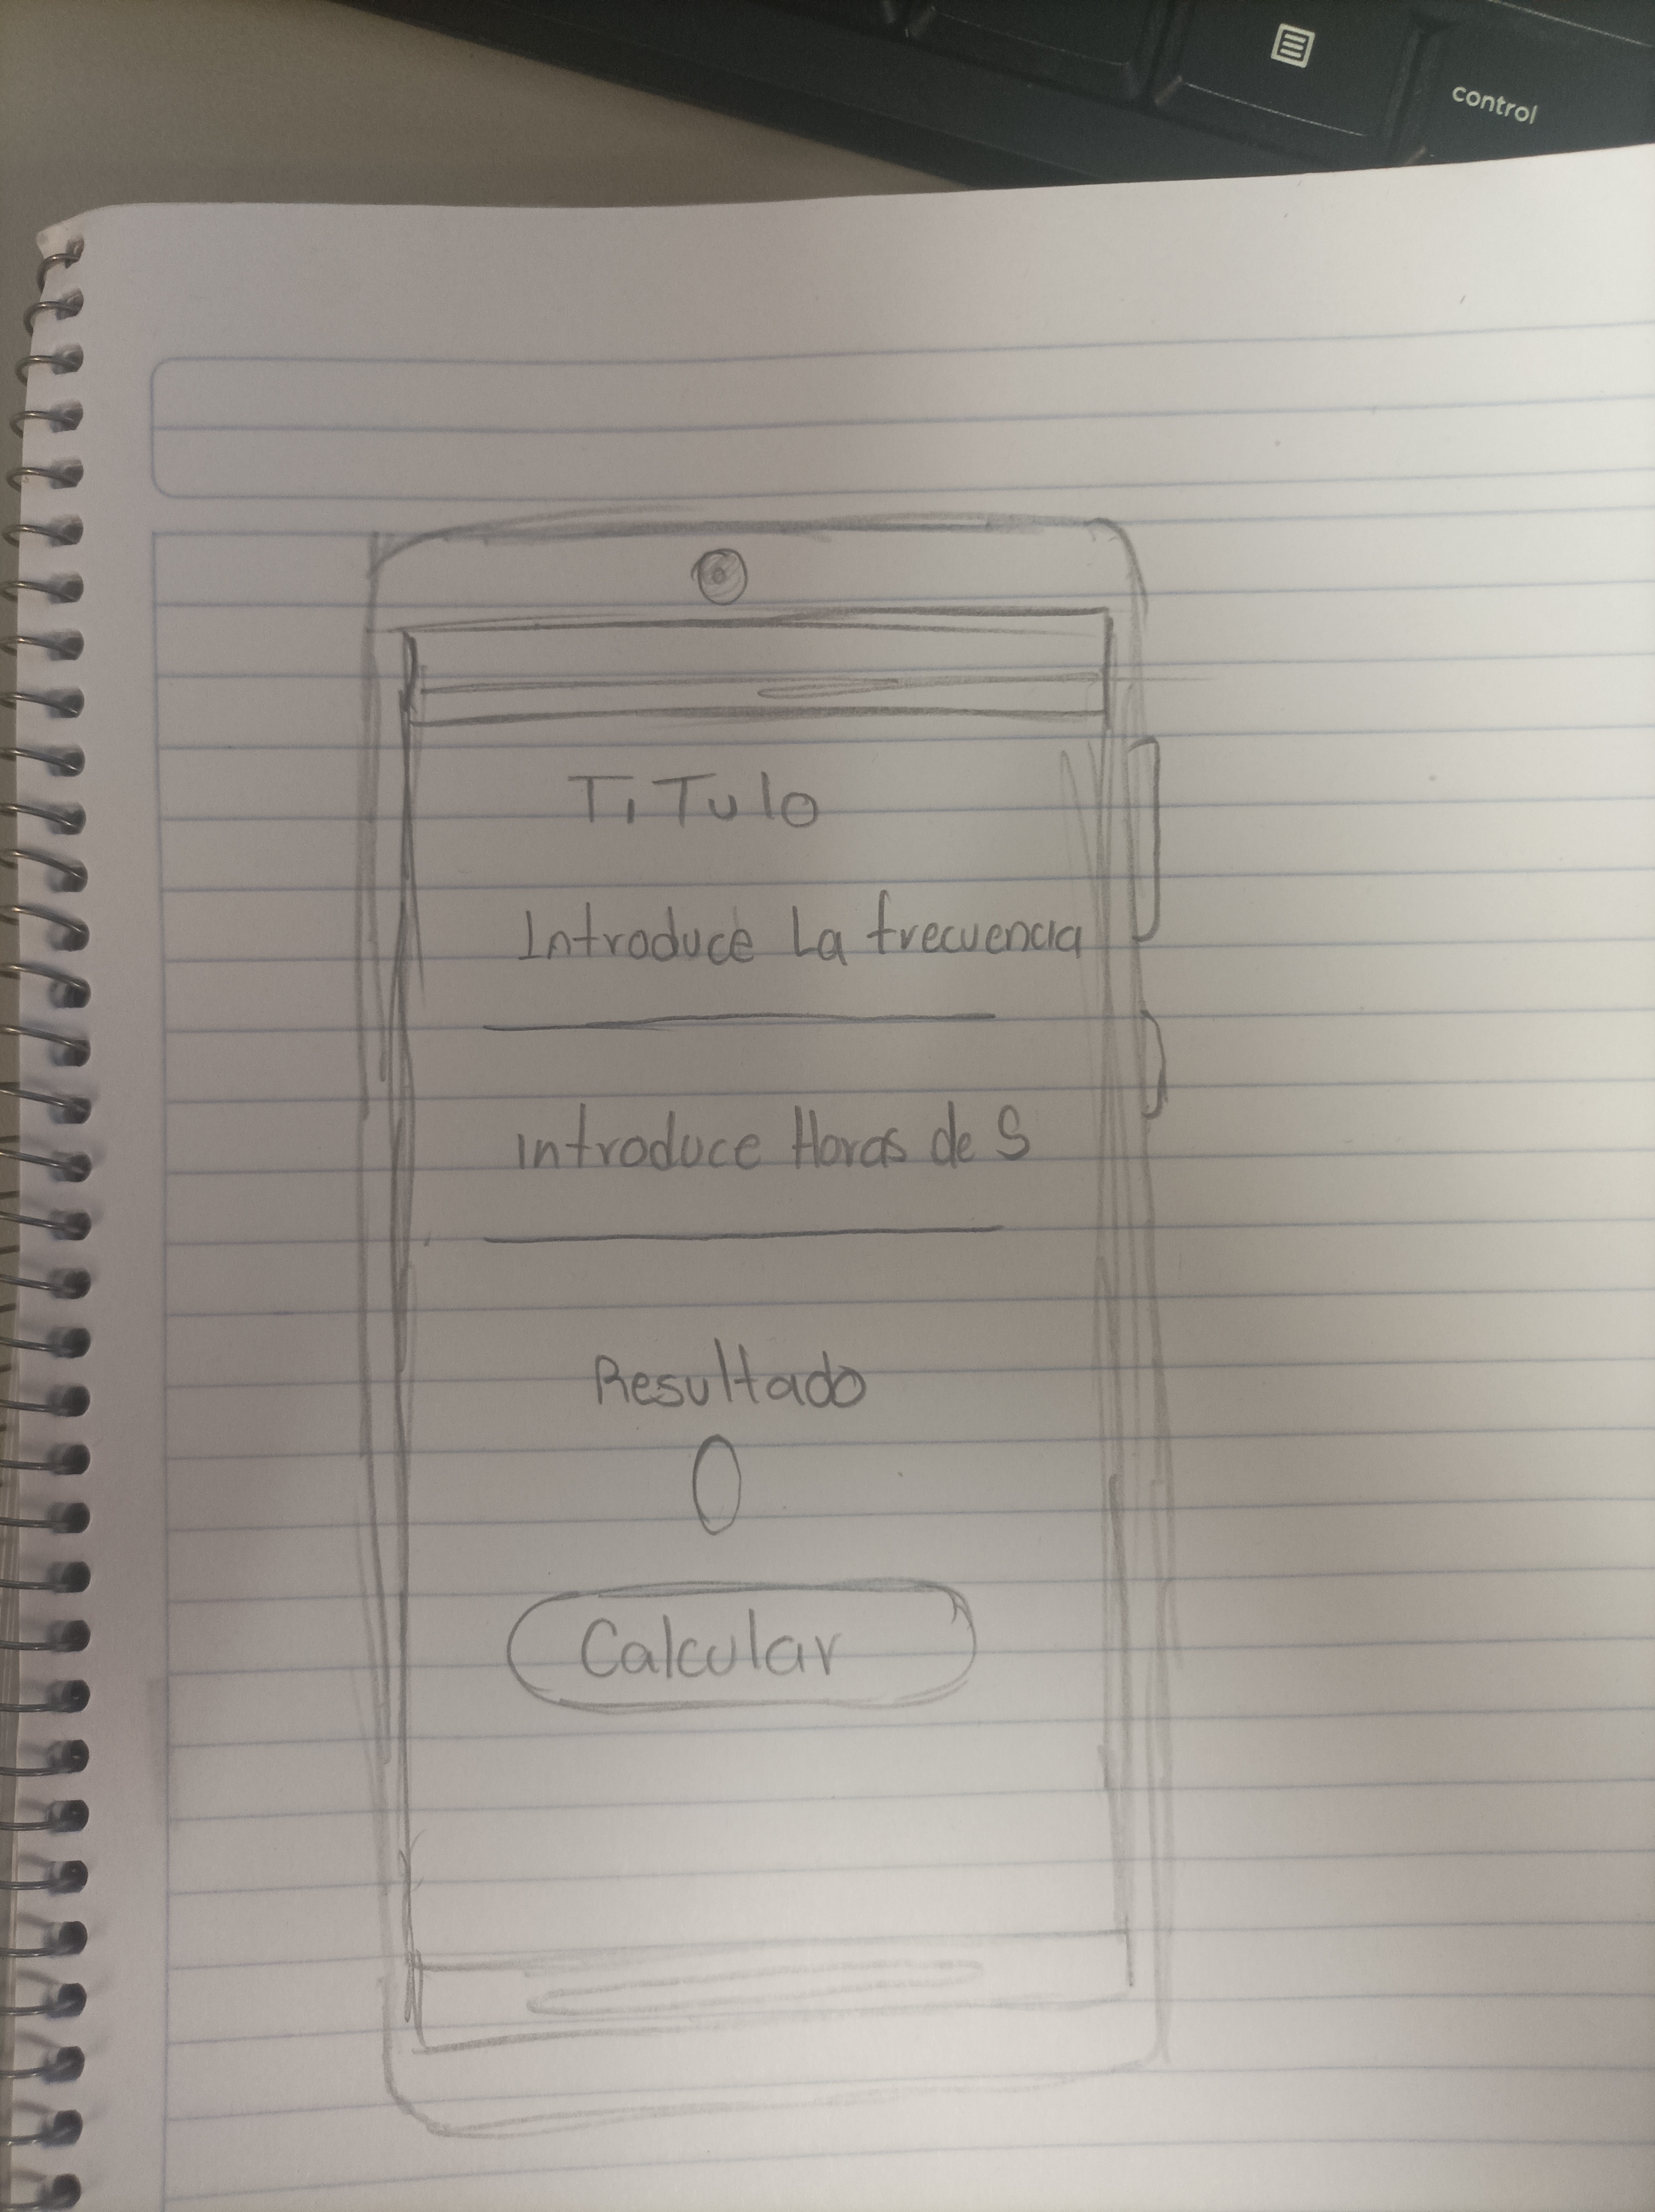 control
TiTulo
Introduce La frecuencia
introduce Horas de S
Resultado
0
Calcular